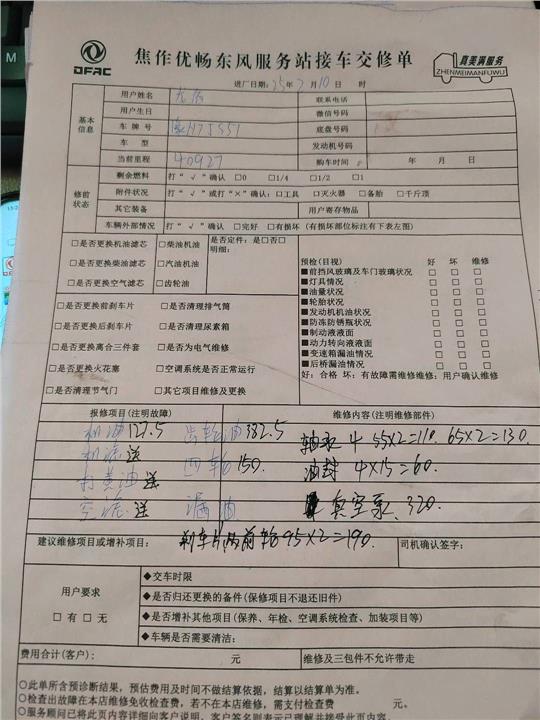 DFAC
焦作优畅东风服务站接车交修单
真美满服务
ZHENMEIMANFUWU
进厂日期: 25年 月10日 时
基本信息
用户姓名 联系电话
用户生日 微信号码
车 牌 号 底盘号码
车 型 发动机号码
当前里程 40927 购车时间 年 月 日
修前状态
剩余燃料 打“√”确认 □0 □1/4 □1/2 □1
附件状况 打“√”或打“×”确认: □工具 □灭火器 □备胎 □千斤顶
其它装备 用户寄存物品
车辆外部情况 打“√”确认 □完好 □有损坏 (有损坏部位标注有下表左图)
□是否更换机油滤芯 □柴油机油 是否定件: 是□否□
明细:
□是否更换柴油滤芯 □汽油机油
□是否更换空气滤芯 □齿轮油
预检(目视) 好 坏 维修
■前挡风玻璃及车门玻璃状况 □ □ □
■灯具情况 □ □ □
■油量状况 □ □ □
■轮胎状况 □ □ □
■发动机机油状况 □ □ □
■防冻防锈瓶状况 □ □ □
■制动液液面 □ □ □
■动力转向液液面 □ □ □
■变速箱漏油情况 □ □ □
■后桥漏油情况 □ □ □
好: 合格 坏: 有故障需维修维修: 用户确认维修
□是否更换前刹车片 □是否清理排气筒
□是否更换后刹车片 □是否清理尿素箱
□是否更换离合三件套 □是否为电气维修
□是否更换火花塞 □空调系统是否正常运行
□是否清理节气门 □其它项目维修及更换
报修项目(注明故障) 维修内容(注明维修部件)
机油127.5 齿轮油382.5 轴承 4 55X2=110. 65X2=130.
机滤 送 四轮150. 油封 4X15=60.
打黄油送 真空泵. 320.
空滤. 送 漏油
建议维修项目或增补项目: 刹车片两前轮95X2=190. 司机确认签字:
用户要求
□有 □无
◆交车时限
◆是否归还更换的备件(保修项目不退还旧件)
◆是否增补其他项目(保养、年检、空调系统检查、加装项目等)
◆车辆是否需要清洁:
费用合计(客户): 元 维修及三包件不允许带走
○此单所含预诊断结果, 预估费用及时间不做结算依据, 结算以结算单为准。
○检查出故障在本店维修免收检查费, 若不在本店维修, 需支付检查费 元。
○服务顾问已将此页内容详细向客户说明, 客户签名则表示已理解并接受此页内容。